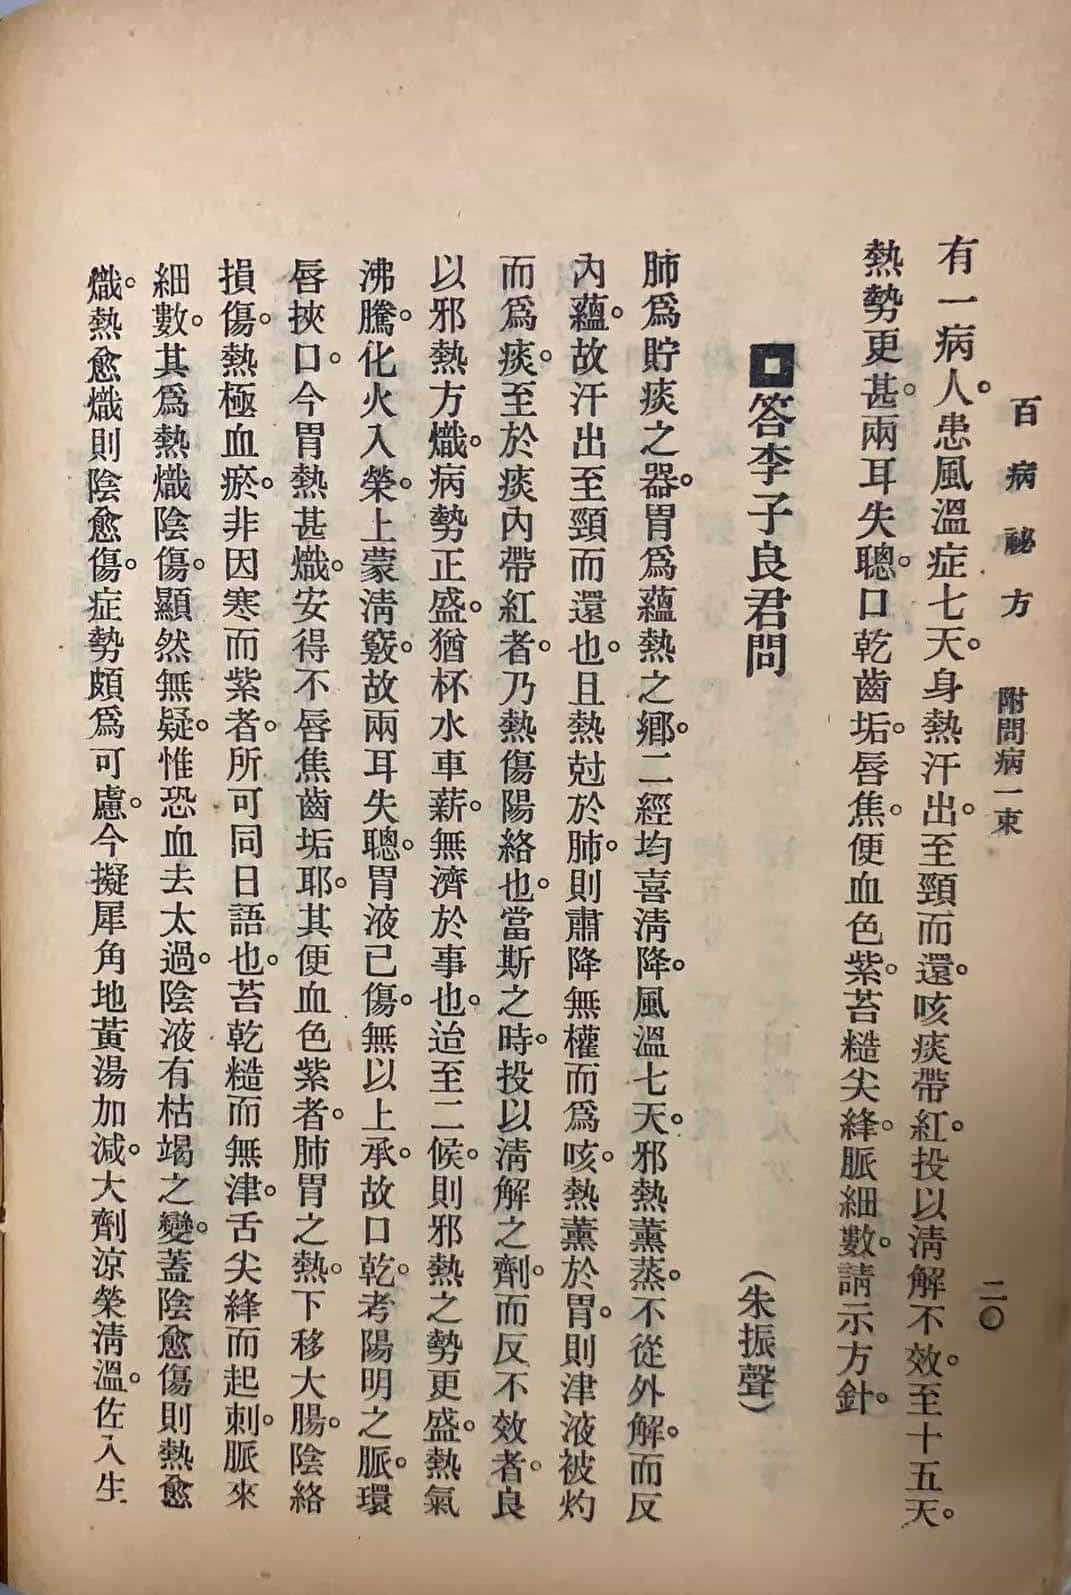 百病祕方 附問病一束 二〇
有一病人。患風溫症七天。身熱汗出。至頸而還。咳痰帶紅。投以淸解不效。至十五天。
熱勢更甚。兩耳失聰。口乾齒垢。唇焦。便血色紫。苔糙尖絳。脈細數。請示方針。
答李子良君問 (朱振聲)
肺爲貯痰之器。胃爲蘊熱之鄕。二經均喜淸降。風溫七天。邪熱薰蒸。不從外解。而反
內蘊。故汗出至頸而還也。且熱尅於肺。則肅降無權而爲咳。熱薰於胃。則津液被灼
而爲痰。至於痰內帶紅者。乃熱傷陽絡也。當斯之時。投以淸解之劑。而反不效者。良
以邪熱方熾。病勢正盛。猶杯水車薪。無濟於事也。迨至二候。則邪熱之勢更盛。熱氣
沸騰。化火入榮。上蒙淸竅。故兩耳失聰。胃液已傷。無以上承。故口乾。考陽明之脈。環
唇挾口。今胃熱甚熾。安得不唇焦齒垢耶。其便血色紫者。肺胃之熱。下移大腸。陰絡
損傷。熱極血瘀。非因寒而紫者。所可同日語也。苔乾糙而無津。舌尖絳而起刺。脈來
細數。其爲熱熾陰傷。顯然無疑。惟恐血去太過。陰液有枯竭之變。蓋陰愈傷則熱愈
熾。熱愈熾則陰愈傷。症勢頗爲可慮。今擬犀角地黃湯加減。大劑涼榮淸溫。佐入生